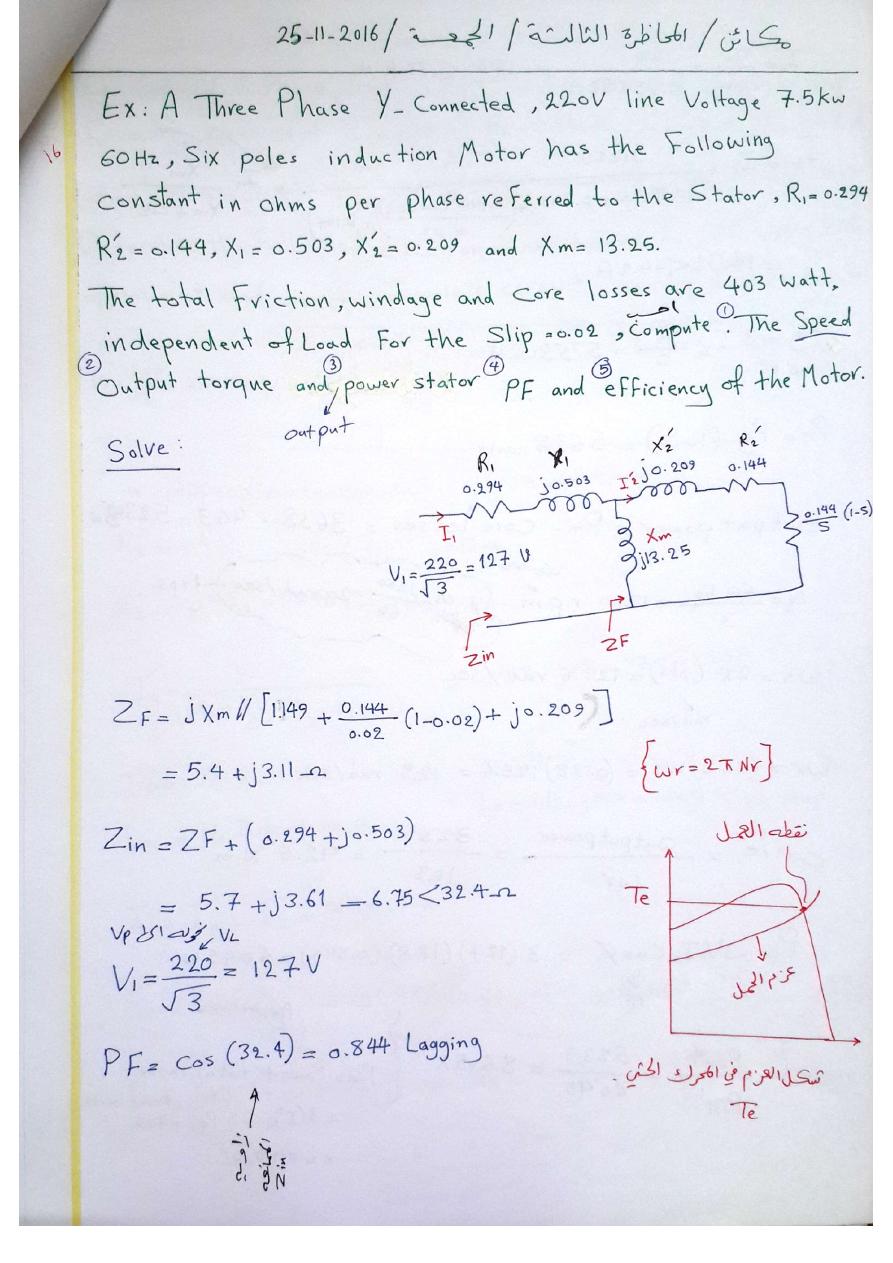 مكائن / المحاظرة الثالثة / الجمعة / 25-11-2016
16
Ex: A Three Phase Y-Connected, 220V line Voltage 7.5kw
60Hz, Six poles induction Motor has the Following
Constant in ohms per phase referred to the Stator, R₁=0.294
R₂́=0.144, X₁=0.503, X₂́=0.209 and Xm=13.25.
The total Friction, windage and core losses are 403 watt,
احسب ①
independent of Load For the Slip =0.02, Compute: The Speed
② ③ ④ ⑤
Output torque and power stator PF and efficiency of the Motor.
output
Solve:
R₁ X₁ X₂́ R₂́
0.294 j0.503 I₂́ j0.209 0.144
I₁
0.144/S (1-S)
Xm
j13.25
V₁ = 220/√3 = 127 V
Zin ZF
ZF = jXm // [1.149 + 0.144/0.02 (1-0.02) + j0.209]
= 5.4 + j3.11 Ω
{wr = 2π Nr}
Zin = ZF + (0.294 + j0.503)
= 5.7 + j3.61 = 6.75<32.4 Ω
Vp VL
V₁ = 220/√3 = 127 V
PF = cos (32.4) = 0.844 Lagging
Zin
نقطة العمل
Te
عزم الحمل
شكل العزم في المحرك الحثي
Te